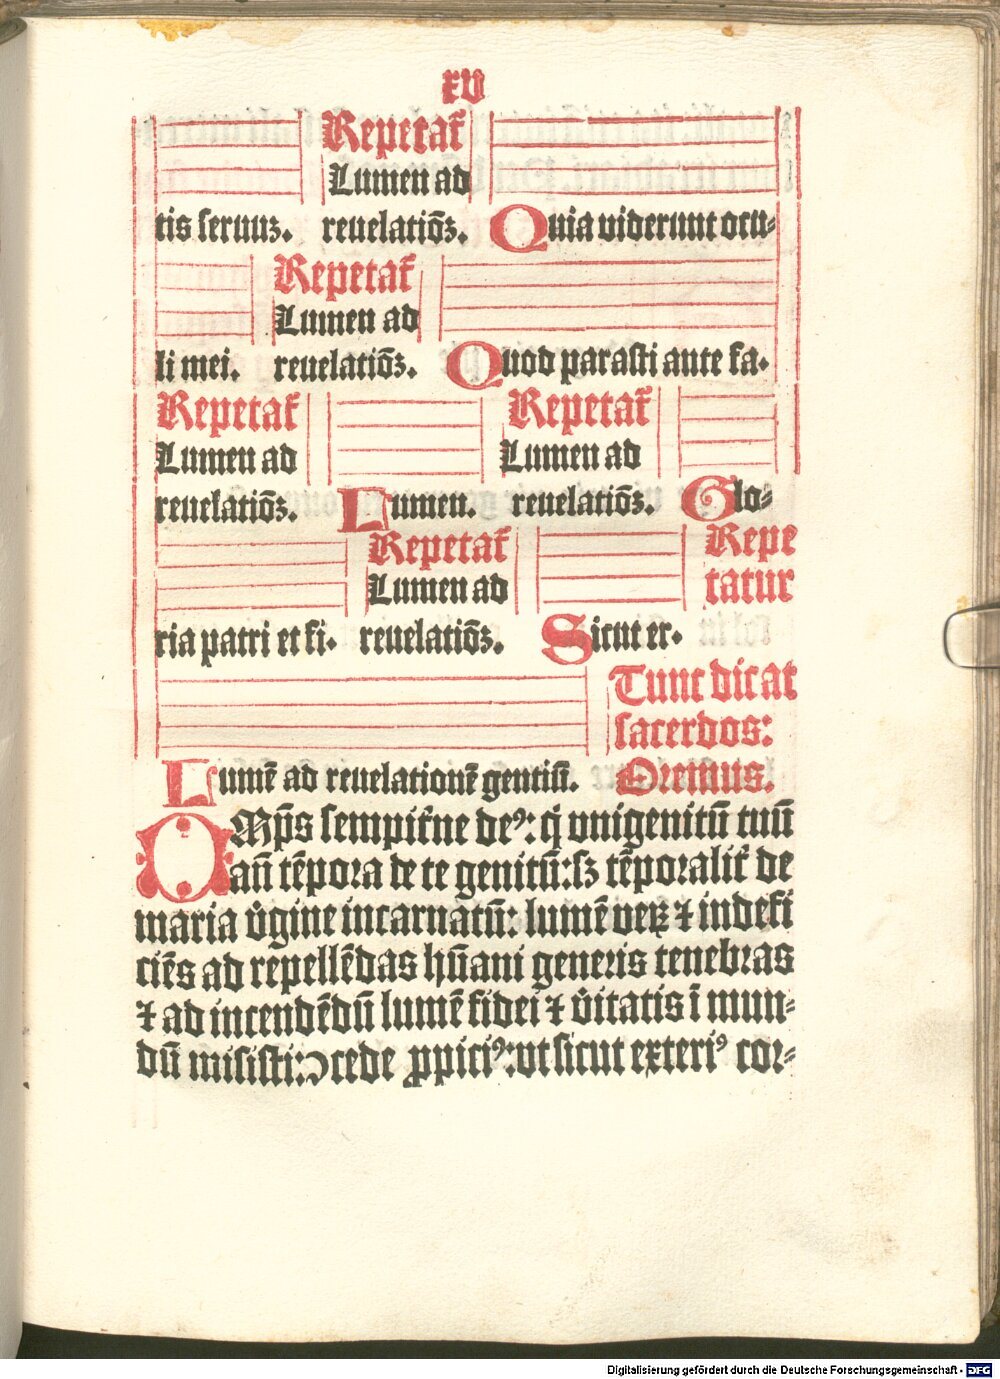 xv
Repetat᷑
Lumen ad
tis seruuꝫ. reuelatiōꝫ. Quia viderunt ocu⸗
Repetat᷑
Lumen ad
li mei. reuelatiōꝫ. Quod parasti ante fa.
Repetat᷑ Repetat᷑
Lumen ad Lumen ad
reuelatiōꝫ. Lumen. reuelatiōꝫ. Glo⸗
Repetat᷑ Repe
Lumen ad tatur
ria patri et fi. reuelatiōꝫ. Sicut er.
Tunc dicat
sacerdos:
Lumē ad reuelationē gentiū. Oremus.
OMp̄s sempit᷑ne deꝰ: q̇ vnigenitū tuū
an̄ tēpora de te genitū: sꝫ tēporalit᷑ de
maria v̓gine incarnatū: lumē veꝝ ⁊ indefi
ciēs ad repellēdas hūani generis tenebras
⁊ ad incendēdū lumē fidei ⁊ v̓itatis ī mun⸗
dū misisti: ↄcede ꝓpiciꝰ: vt sicut exteriꝰ cor⸗
Digitalisierung gefördert durch die Deutsche Forschungsgemeinschaft - DFG